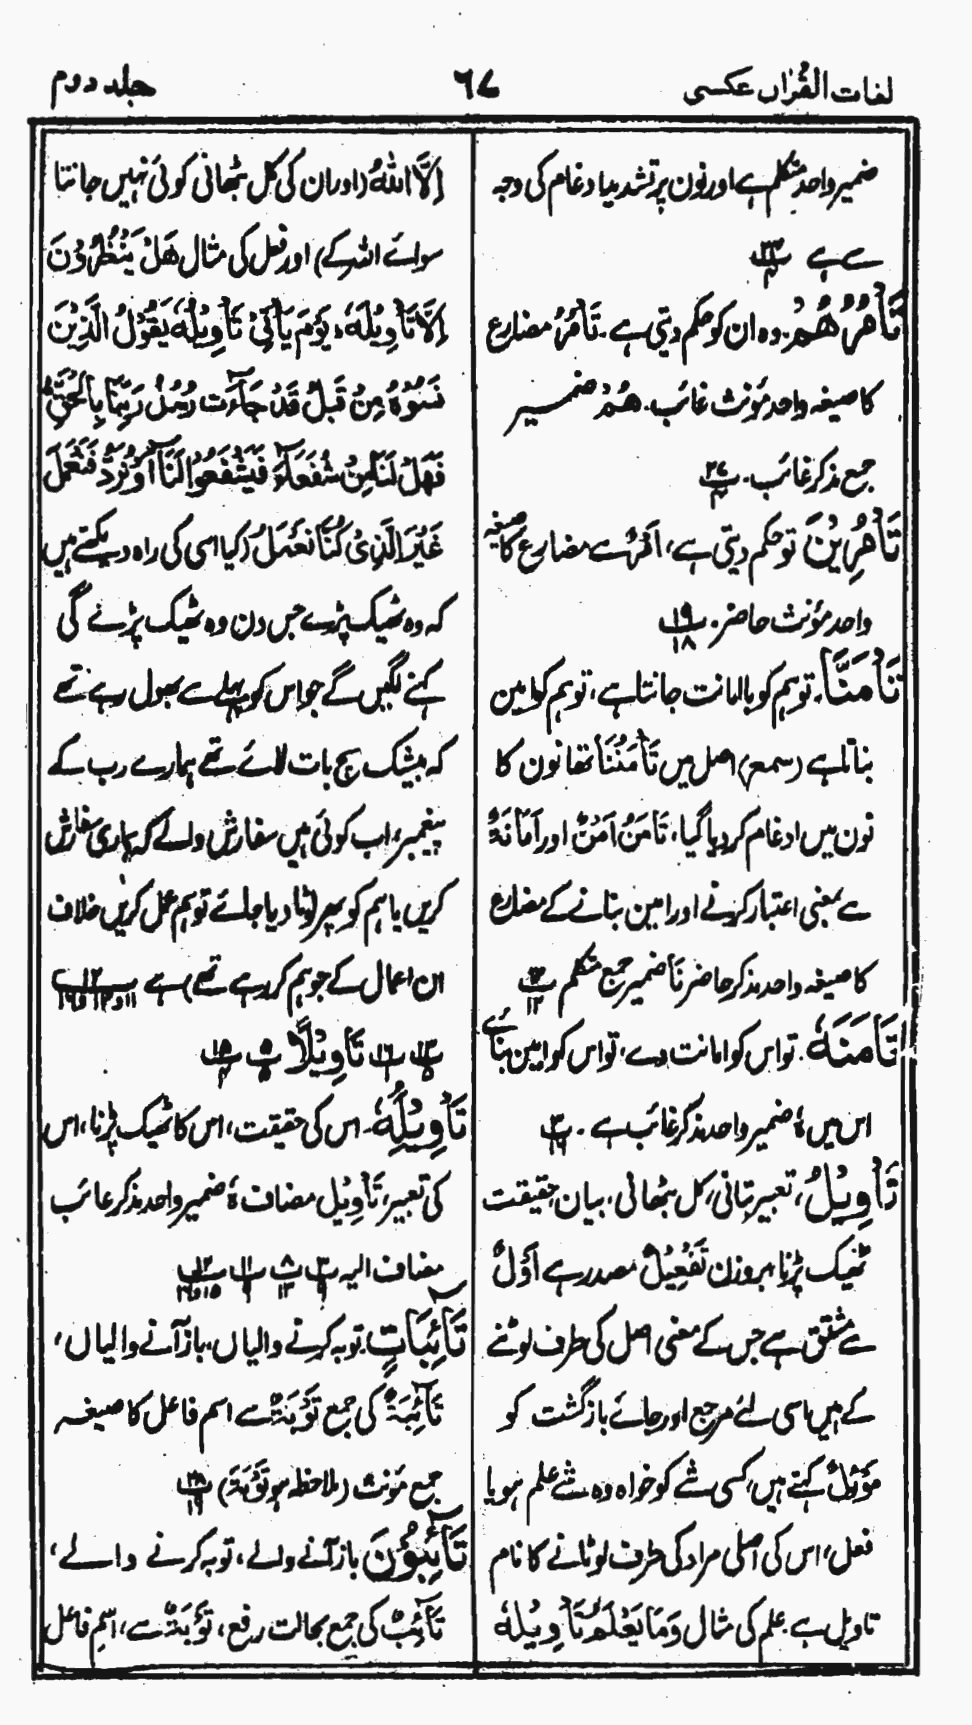 لغات القرآن عکسی
۶۷
جلد دوم
ضمیر واحد متکلم ہے اور نون پر تشدید ادغام کی وجہ
سے ہے
تَأْمُرُهُمْ. وہ ان کو حکم دیتی ہے. تَأْمُرُ مضارع
کا صیغہ واحد مؤنث غائب. هُمْ ضمیر
جمع مذکر غائب. پ ۲۷
تَأْمُرِيْنَ تو حکم دیتی ہے، اَمْرٌ سے مضارع کا صیغہ
واحد مؤنث حاضر. پ ۱۹ ۱۸
تَأْمَنَّا. تو ہم کو با امانت جانتا ہے، تو ہم کو امین
بناتا ہے (سمع) اصل میں تَأْمَنُنَا تھا نون کا
نون میں ادغام کر دیا گیا، تَأْمَنُ اَمْنٌ اور اَمَانَةٌ
سے بمعنی اعتبار کرنے اور امین بنانے کے مضارع
کا صیغہ واحد مذکر حاضر نَا ضمیر جمع متکلم پ ۱۲ ۱۲
تَأْمَنْهُ. تو اس کو امانت دے، تو اس کو امین بنائے
اس میں ہٗ ضمیر واحد مذکر غائب ہے. پ
تَأْوِيْلُ، تعبیر بتانی، کل بٹھانی، بیان حقیقت
ٹھیک پڑنا بروزن تَفْعِيْلٌ مصدر ہے اَوْلٌ
سے مشتق ہے جس کے معنی اصل کی طرف لوٹنے
کے ہیں اسی لئے مرجع اور جائے بازگشت کو
مَوْئِلٌ کہتے ہیں، کسی شے کو خواہ وہ شے علم ہو یا
فعل، اس کی اصلی مراد کی طرف لوٹانے کا نام
تاویل ہے. علم کی مثال وَمَا يَعْلَمُ تَأْوِيْلَهٗ
اِلَّا اللّٰهُ (اور ان کی کل بٹھانی کوئی نہیں جانتا
سوائے اللہ کے) اور فعل کی مثال هَلْ يَنْظُرُوْنَ
اِلَّا تَأْوِيْلَهٗ، يَوْمَ يَأْتِيْ تَأْوِيْلُهٗ يَقُوْلُ الَّذِيْنَ
نَسُوْهُ مِنْ قَبْلُ قَدْ جَآءَتْ رُسُلُ رَبِّنَا بِالْحَقِّ
فَهَلْ لَّنَا مِنْ شُفَعَآءَ فَيَشْفَعُوْا لَنَآ اَوْ نُرَدُّ فَنَعْمَلَ
غَيْرَ الَّذِيْ كُنَّا نَعْمَلُ (کیا اسی کی راہ دیکھتے ہیں
کہ وہ ٹھیک پڑے جس دن وہ ٹھیک پڑنے گی
کہنے لگیں گے جو اس کو پہلے سے بھول رہے تھے
کہ بیشک سچ بات لائے تھے ہمارے رب کے
پیغمبر، اب کوئی ہیں سفارش والے کہ ہماری سفارش
کریں یا ہم کو پھر لوٹا دیا جائے تو ہم عمل کریں خلاف
ان اعمال کے جو ہم کر رہے تھے) ہے
تَأْوِيْلًا پ ۵ پ ۱۵
تَأْوِيْلُهٗ. اس کی حقیقت، اس کا ٹھیک پڑنا، اس
کی تعبیر، تَأْوِيْل مضاف، ہٗ ضمیر واحد مذکر غائب
مضاف الیہ
تَائِبَاتٍ. توبہ کرنے والیاں، باز آنے والیاں،
تَائِبَةٌ کی جمع تَوْبَةٌ سے اسم فاعل کا صیغہ
جمع مؤنث (ملاحظہ ہو تَوْبَة) پ ۲۸ ۱۹
تَآئِبُوْنَ باز آنے والے، توبہ کرنے والے،
تَآئِبٌ کی جمع بحالت رفع، تَوْبَةٌ سے، اسم فاعل